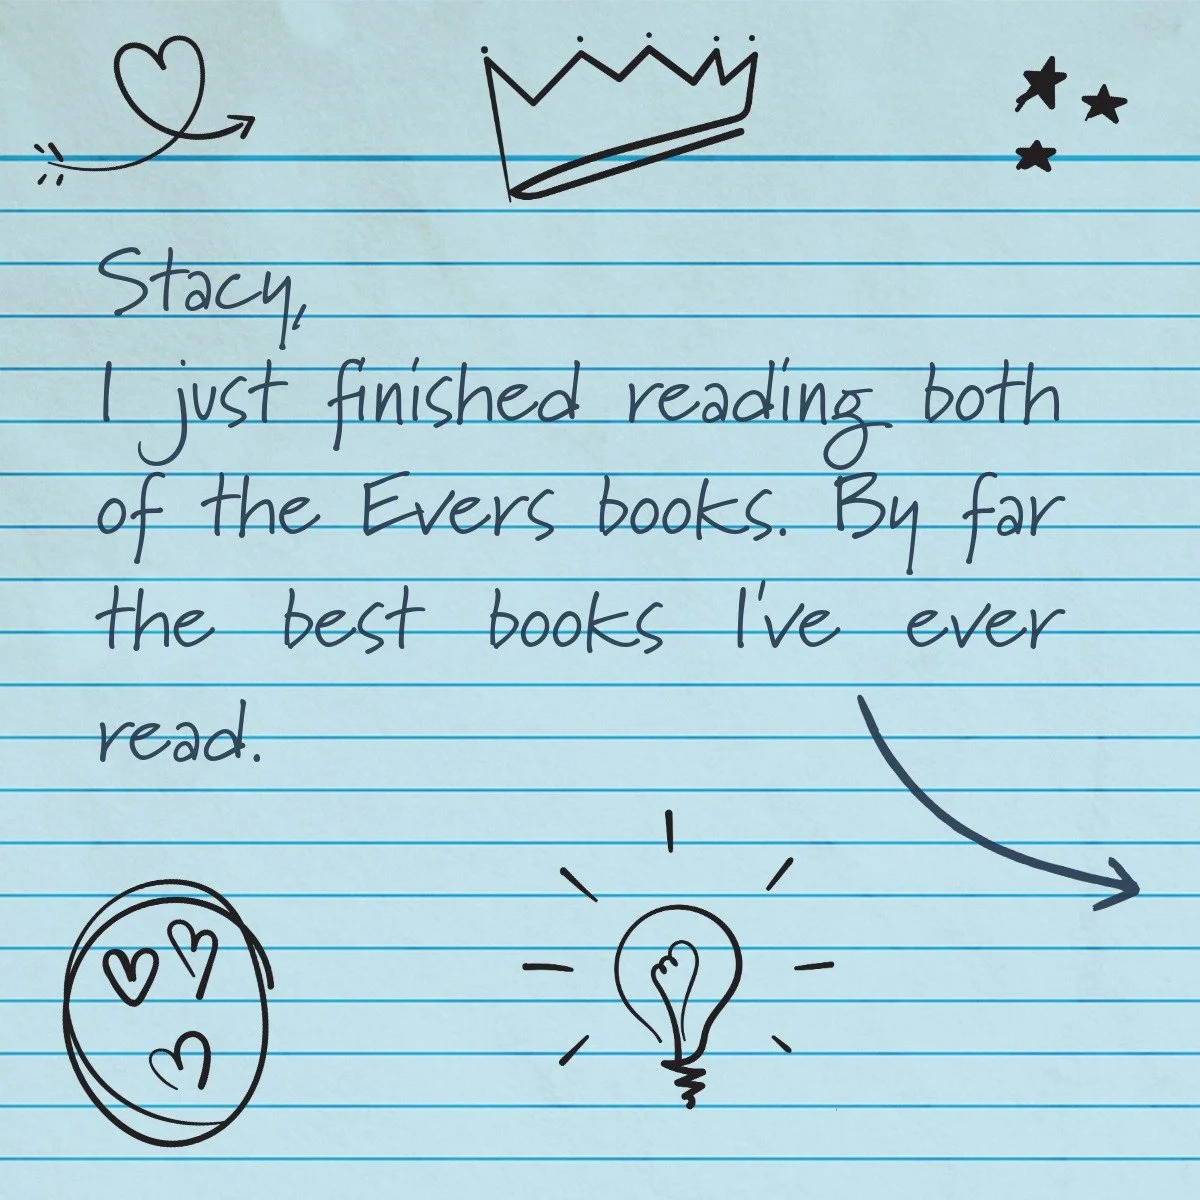 Stacy,
I just finished reading both
of the Evers books. By far
the best books I've ever
read.